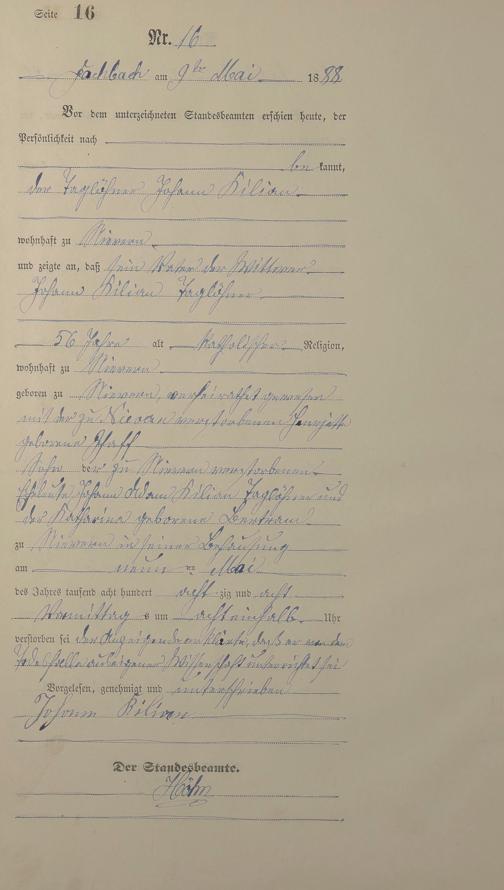 Seite 16
Nr. 16
Fachbach am 9ten Mai 1888
Vor dem unterzeichneten Standesbeamten erschien heute, der
Persönlichkeit nach
be kannt,
der Taglöhner Johann Kilian
wohnhaft zu Nievern
und zeigte an, daß sein Vater der Wittwer
Johann Kilian Taglöhner
56 Jahre alt, katholischer Religion,
wohnhaft zu Nievern
geboren zu Nievern, verheirathet gewesen
mit der zu Nievern verstorbenen
geborene Schaff
Sohn der zu Nievern verstorbenen
Eheleute Johann Adam Kilian Taglöhner und
der Katharina geborene Bertram
zu Nievern in seiner Behausung
am neun ten Mai
des Jahres tausend acht hundert acht zig und acht
Vormittag s um acht einhalb Uhr
verstorben sei der Anzeigende erklärte, daß er von dem
Todesfalle aus eigener Wissenschaft unterrichtet sei
Vorgelesen, genehmigt und unterschrieben
Johann Kilian
Der Standesbeamte.
Höhn